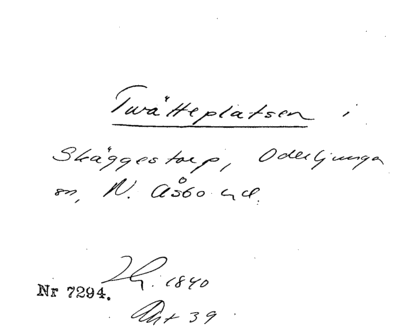 Twätteplatsen i
Skäggestorp, Oderljunga
sn, N. Åsbo hd.
1840
Nr 7294.
Akt 39